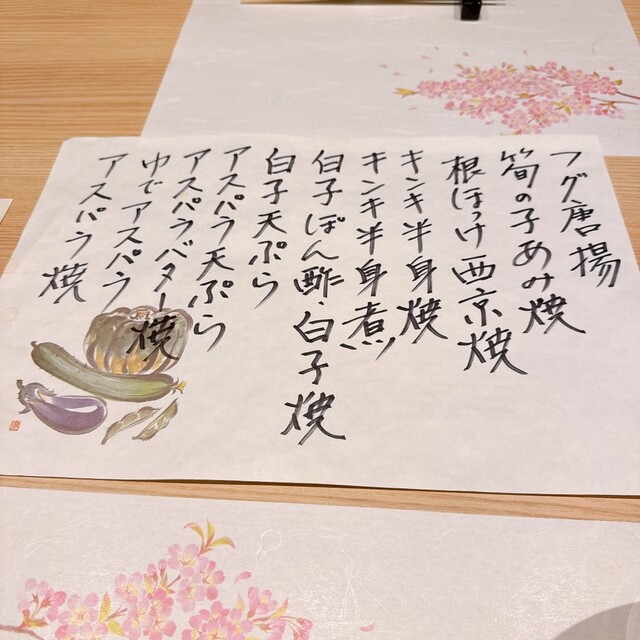 フグ唐揚
筍の子あみ焼
根ほっけ西京焼
キンキ半身焼
キンキ半身煮
白子ぽん酢・白子焼
白子天ぷら
アスパラ天ぷら
アスパラバター焼
ゆでアスパラ
アスパラ焼